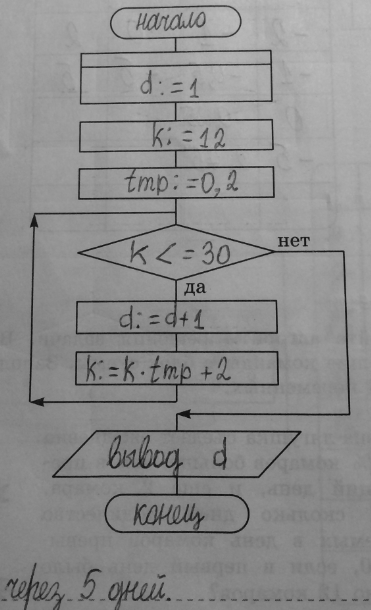 начало
d:=1
k:=12
tmp:=0,2
k<=30
нет
да
d:=d+1
k:=k·tmp+2
вывод d
конец
через 5 дней.